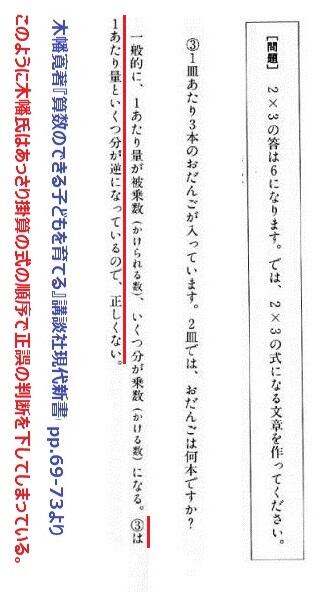 [問題] 2×3の答は6になります。では、2×3の式になる文章を作ってください。
③1皿あたり3本のおだんごが入っています。2皿では、おだんごは何本ですか?
一般的に、1あたり量が被乗数(かけられる数)、いくつ分が乗数(かける数)になる。③は
1あたり量といくつ分が逆になっているので、正しくない。
木幡寛著『算数のできる子どもを育てる』講談社現代新書 pp.69-73より
このように木幡氏はあっさり掛算の式の順序で正誤の判断を下してしまっている。